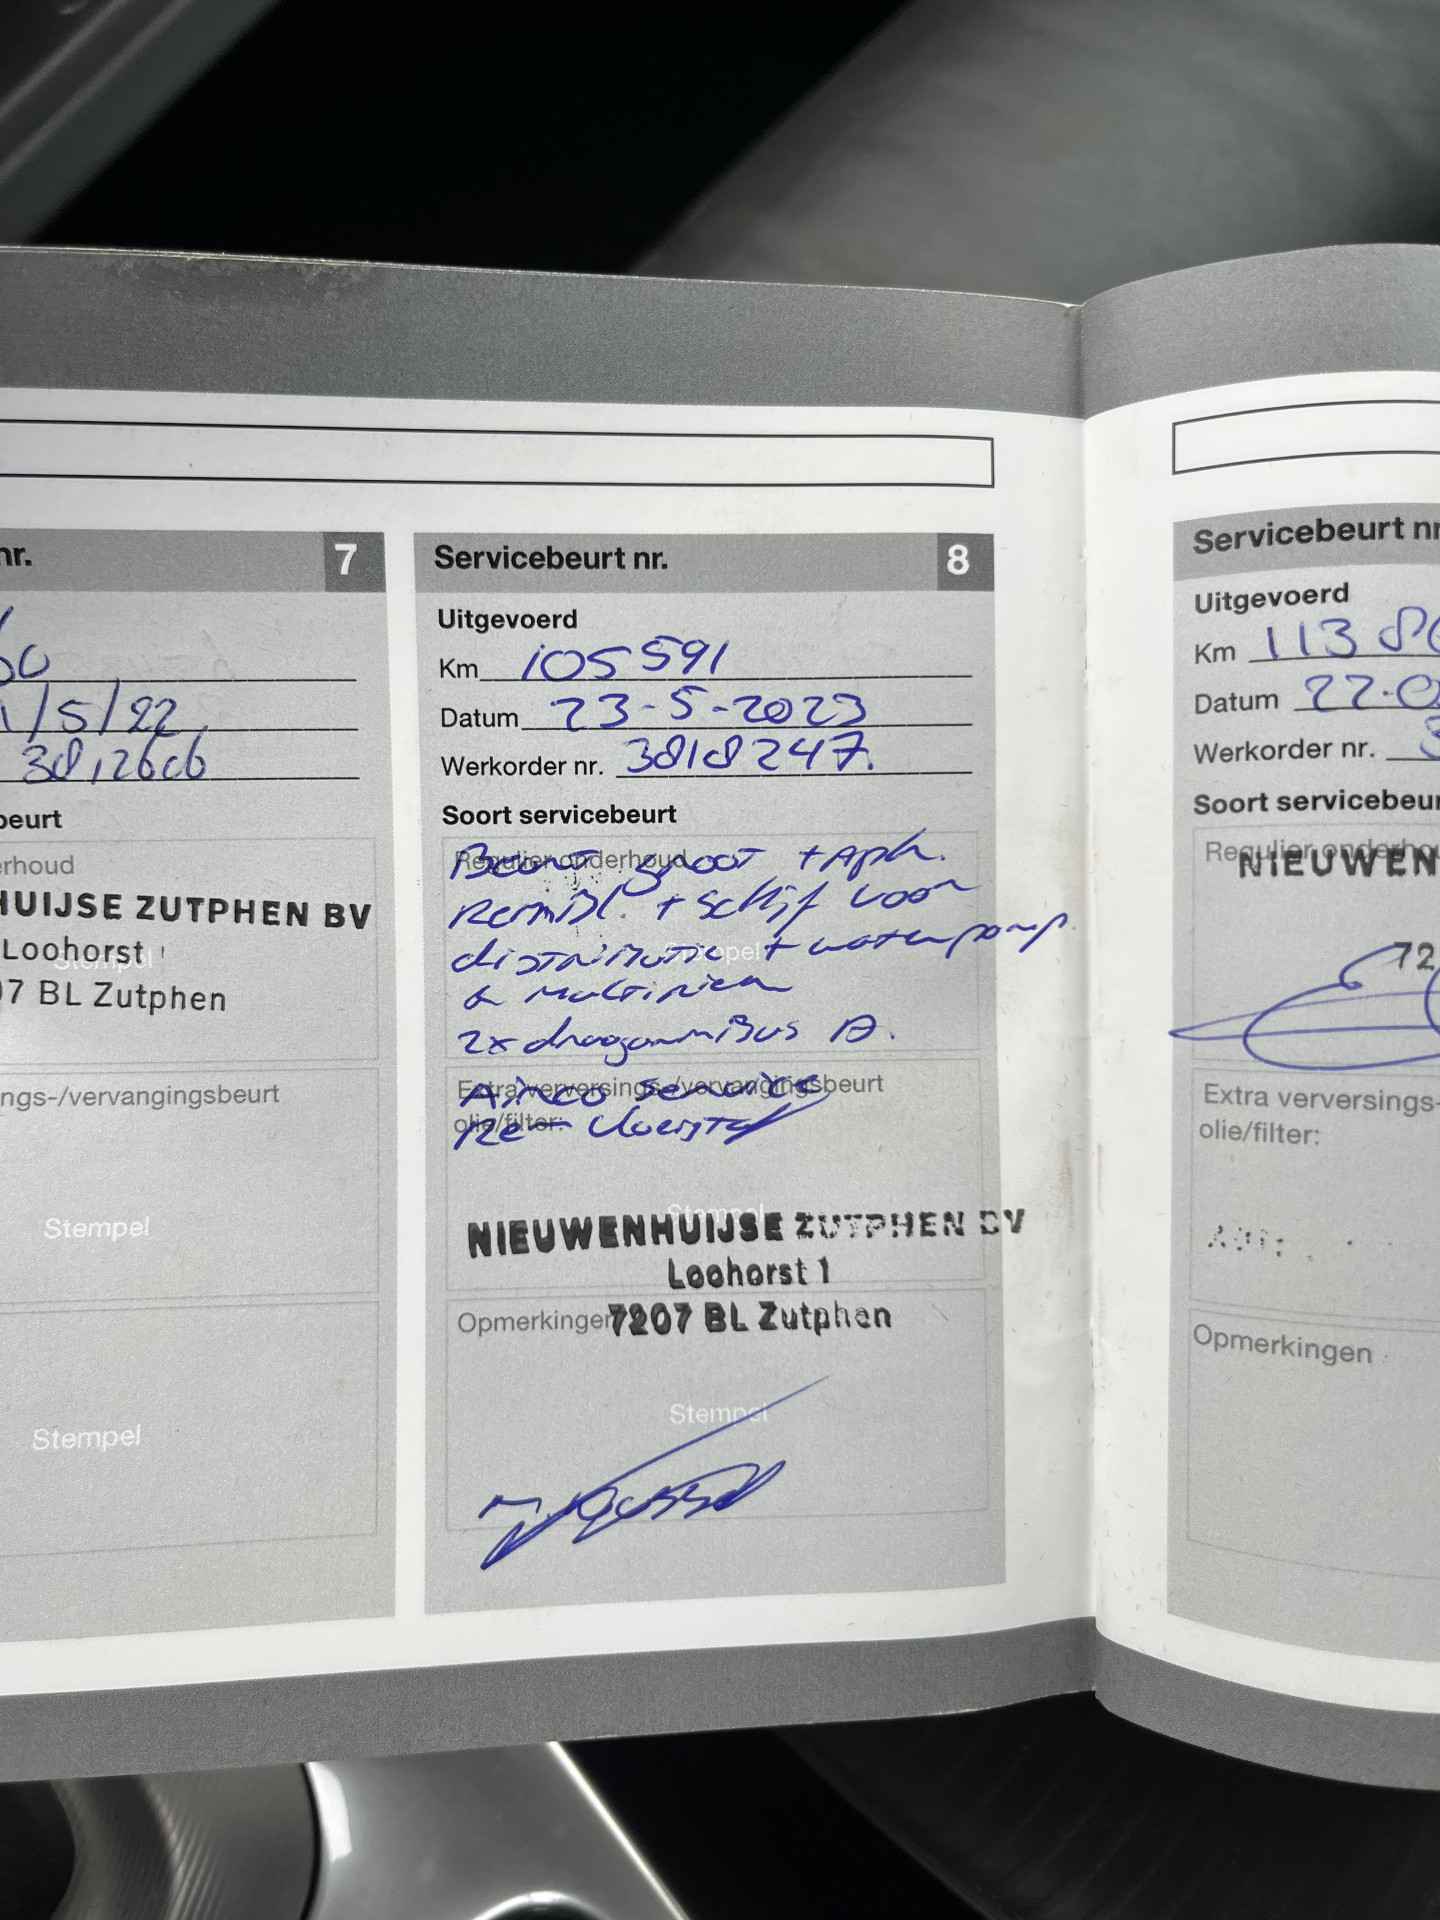 nr. 7
60
1/5/22
beurt
erhoud
HUIJSE ZUTPHEN BV
Loohorst 1
Stempel
07 BL Zutphen
ngs-/vervangingsbeurt
Stempel
Stempel
Servicebeurt nr. 8
Uitgevoerd
Km 105591
Datum 23-5-2023
Werkorder nr. 3818247.
Soort servicebeurt
Regulier onderhoud
Beurt groot + apk.
+ schijf voor
Stempel
distributie + waterpomp.
& multiriem
2x draagarmbus A.
Extra verversings-/vervangingsbeurt
Airco service
olie/filter:
Rem vloeistof
Stempel
NIEUWENHUIJSE ZUTPHEN BV
Loohorst 1
Opmerkingen
7207 BL Zutphen
Stempel
Servicebeurt nr
Uitgevoerd
Km 113 8
Datum 22-0
Werkorder nr. 3
Soort servicebeur
Regulier onderho
NIEUWEN
72
Extra verversings-
olie/filter:
Opmerkingen